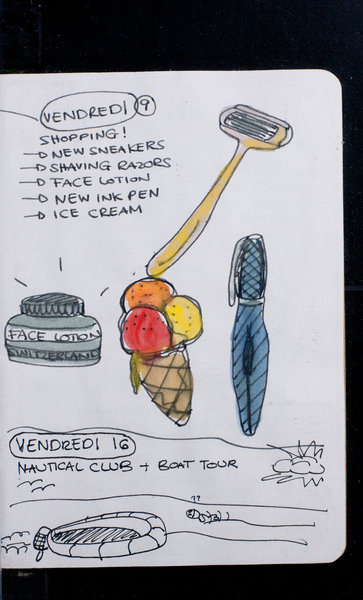 VENDREDI 9
SHOPPING!
→ NEW SNEAKERS
→ SHAVING RAZORS
→ FACE LOTION
→ NEW INK PEN
→ ICE CREAM
FACE LOTION
SWITZERLAND
VENDREDI 16
NAUTICAL CLUB + BOAT TOUR
??